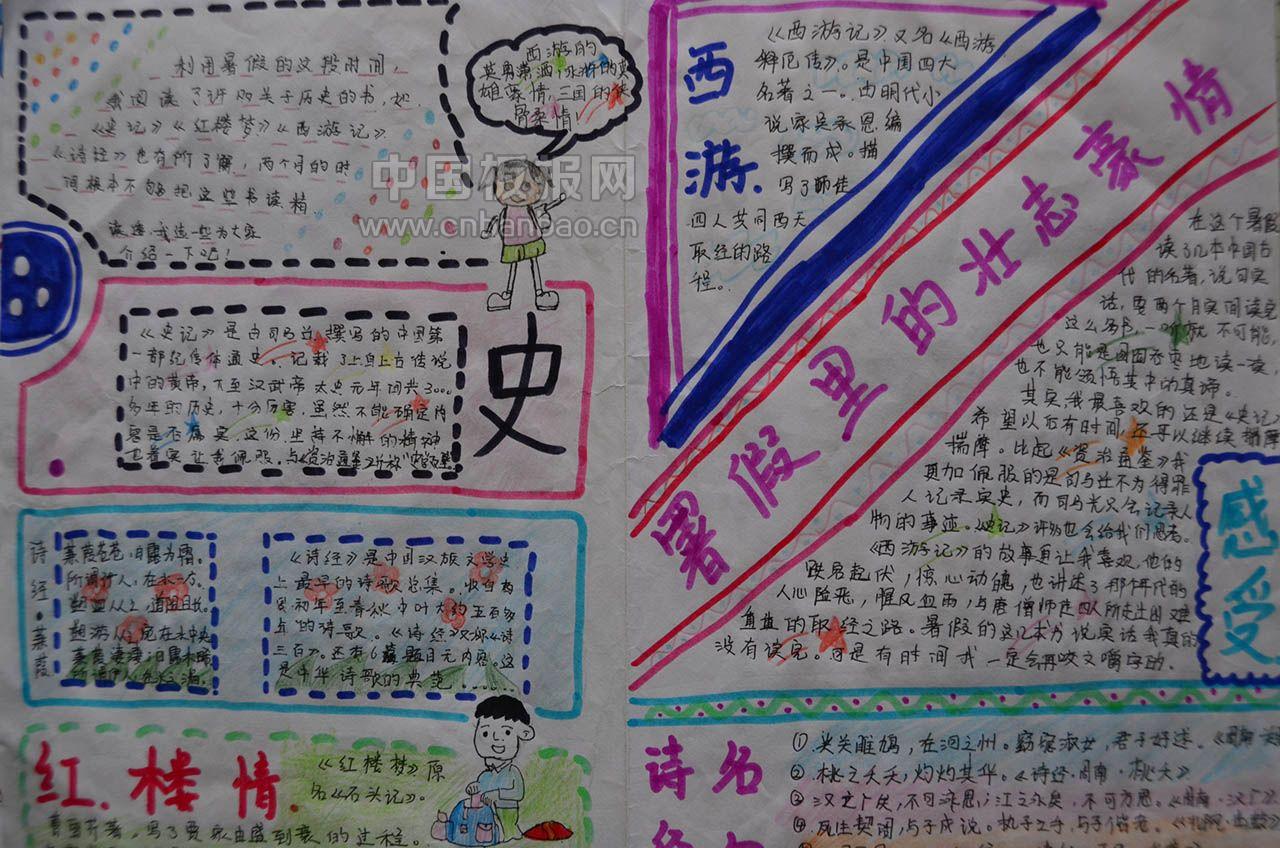 利用暑假的这段时间，
我阅读了许多关于历史的书，如
《史记》《红楼梦》《西游记》
《诗经》也有所了解，两个月的时
间根本不够把这些书读精
读透，我选一些为大家
介绍一下吧！
西游的
英勇潇洒，水浒的英
雄豪情，三国的侠
骨柔情！
中国板报网
www.cnbanbao.cn
史
《史记》是由司马迁撰写的中国第
一部纪传体通史。记载了上自上古传说
中的黄帝，下至汉武帝太史元年间共3000
多年的历史，十分厉害，虽然不能确定内
容是否属实，这份坚持不懈的精神
也着实让我佩服。与《资治通鉴》并称
诗经·蒹葭
蒹葭苍苍，白露为霜。
所谓伊人，在水一方。
溯洄从之，道阻且长。
溯游从之，宛在水中央
《诗经》是中国汉族文学史
上最早的诗歌总集。收自西
周初年至春秋中叶大约五百多
年的诗歌。《诗经》又称《诗
三百》。还有6篇题目无内容。这
是中华诗歌的典范……
红楼情
《红楼梦》原
名《石头记》。
曹雪芹著，写了贾家由盛到衰的过程
西游
《西游记》又名《西游
释厄传》。是中国四大
名著之一。由明代小
说家吴承恩编
撰而成。描
写了师徒
四人共同西天
取经的路
程。
暑假里的壮志豪情
在这个暑假
读了几本中国古
代的名著，说句实
话，要两个月实间读完
这么多书，一听就不可能，
也只能是囫囵吞枣地读一读，
也不能领悟其中的真谛。
其实我最喜欢的还是《史记》
希望以后有时间还可以继续揣摩
揣摩。比起《资治通鉴》我
更加佩服的是司马迁不为得罪
人记录实史，而司马光只会记录人
物的事迹。《史记》许多也会给我们思考。
《西游记》的故事更让我喜欢，他的
跌宕起伏，惊心动魄，也讲述了那个年代的
人心险恶，腥风血雨，与唐僧师徒四人所走出困难
重重的取经之路。暑假的这几本书说实话我真的
没有读完。可是有时间我一定会再咬文嚼字动。
感受
诗名
①关关雎鸠，在河之州。窈窕淑女，君子好逑。
②桃之夭夭，灼灼其华。《诗经·周南·桃夭》
③汉之广矣，不可泳思；江之永矣，不可方思。《周南·汉广》
④死生契阔，与子成说。执子之手，与子偕老。